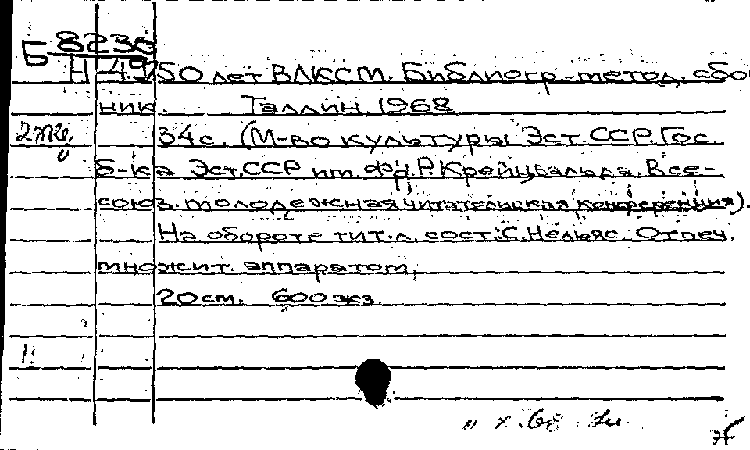 Б 8236
Н-49 50 лет ВЛКСМ. Библиогр.-метод. сбо
ник. Таллин, 1968
34 с. (М-во культуры Эст.ССР. Гос.
б-ка Эст.ССР им. Фр.Р.Крейцвальда. Все-
союз. молодежная читательская конференция).
На обороте тит.л. сост.: С.Нельяс. Отпеч.
множит. аппаратом,
20 см. 600 экз.